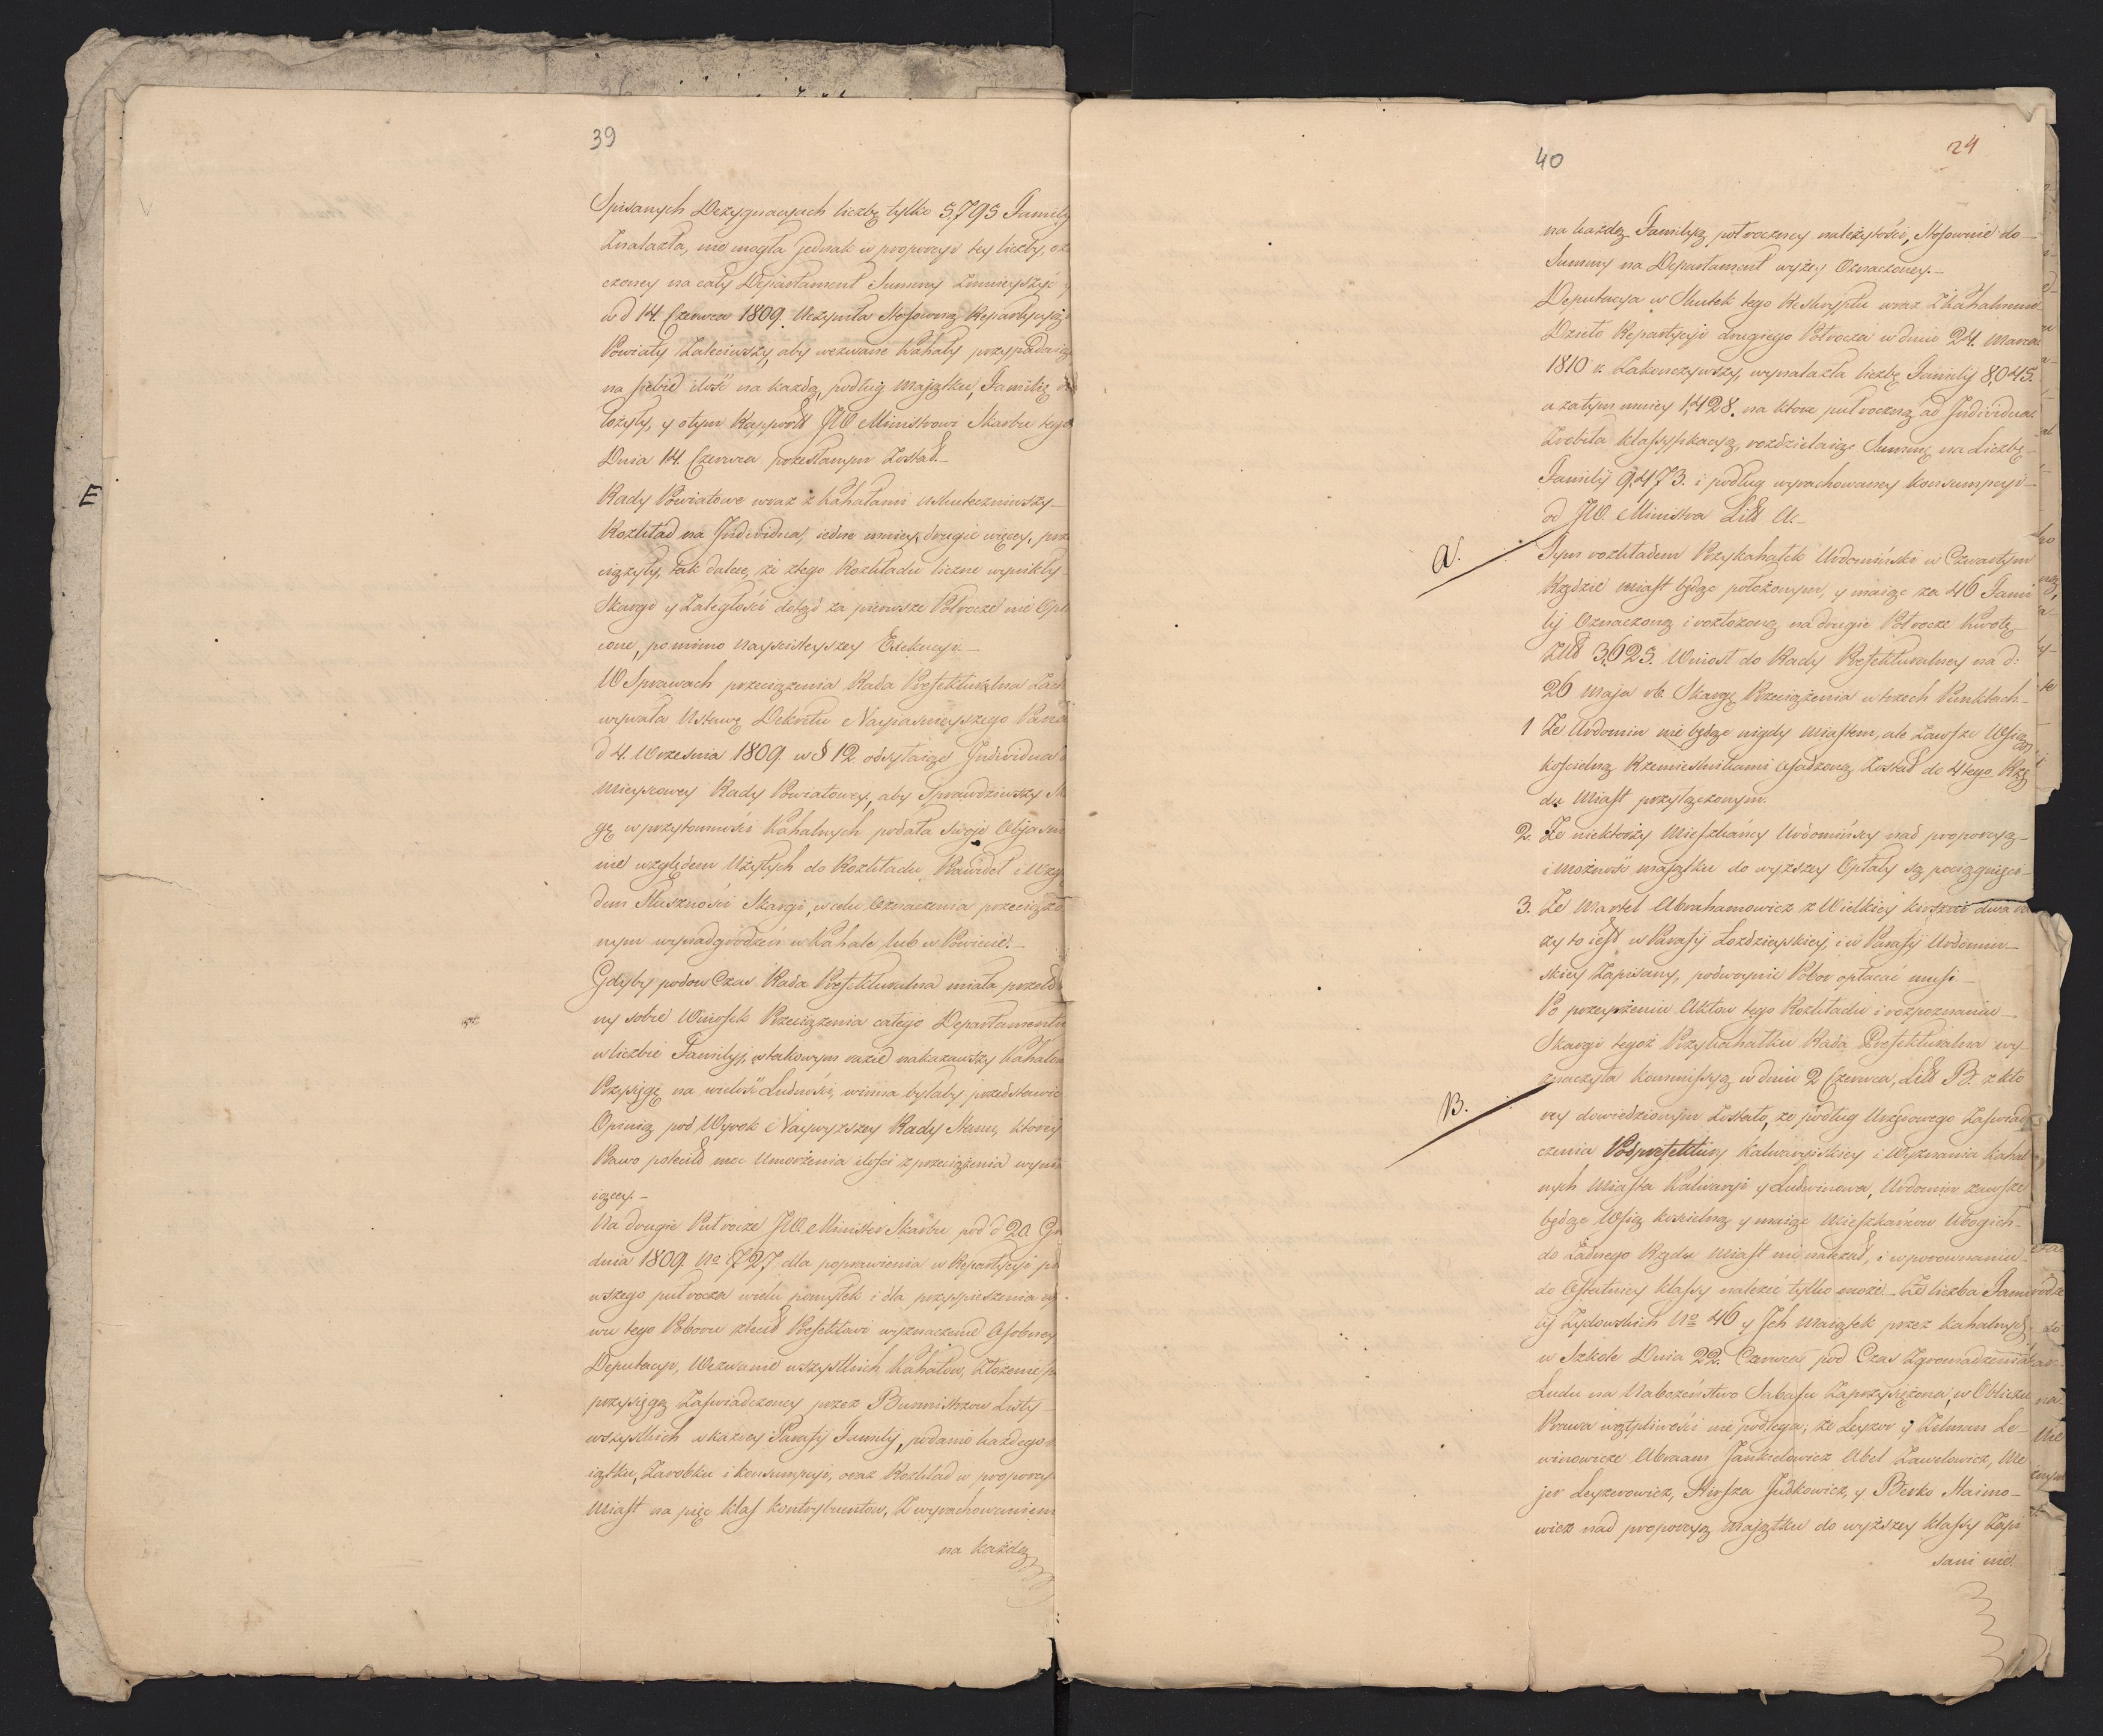 39
Spisanych Dezygnacyach liczbę tylko 5,795 Familij
Znalazła, nie mogła jednak w proporcyi tey liczby,
czoney na cały Departament Summy Zmnieyszyć
w d 14. Czerwca 1809. Uczyniła Stosowną Repartycyą
Powiaty Zaleciwszy, aby wezwane Kahały przypadaiącą
na siebie ilość na każdą, podług Majątku, Familię
łożyły, y otym Rapport JW Ministrowi Skarbu tego
Dnia 14. Czerwca przesłanym Został.
Rady Powiatowe wraz z Kahałami uskuteczniwszy
Rozkład na Individua, iedne mniey, drugie więcey, prze
ciążyły, tak dalece, że z tego Rozkładu liczne wynikły
Skargi y Zaległości dotąd za pierwsze Półrocze nie Opła
cone, pomimo Nayściśleyszey Exekucyi.
W Sprawach przeciążenia Rada Prefekturalna Zach
wywała Ustawę Dekretu Nayiaśnieyszego Pana
d 4. Września 1809. w § 12 odsyłaiąc Individua
Mieyscowey Rady Powiatowey, aby Sprawdziwszy Skar
gę w przytomności Kahalnych podała swoje Obiaśnie
nie względem Użytych do Rozkładu Prawideł i Wzglę
dem Słuszności Skargi, w celu Oznaczenia przeciążo
nym wynadgrodzeń w Kahale lub w Powiecie.
Gdyby podow Czas Rada Prefekturalna miała
ny sobie Wniosek Przeciążenia całego Departamentu
w liczbie Familyi, w takowym razie nakazawszy Kahałom
Przysięgę na wielość Ludności, winna byłaby przedstawić
Opinią pod Wyrok Naywyższey Rady Stanu, którey
Prawo poleciło moc Umorzenia ilości z przeciążenia wynik
iącey.
Na drugie Półrocze JW. Minister Skarbu pod d 20 Gru
dnia 1809. No 1727 dla poprawienia w Repartycyi pier
wszego półrocza wielu pomyłek i dla przyspieszenia
wu tego Poboru zlecił Prefektowi wyznaczenie Osobney
Deputacyi, Wezwanie wszystkich Kahałow, Złożenie
przysięgą Zaświadczoney przez Burmistrzow Listy
wszystkich w każdey Parafij Familij, podanie każdego
iątku, Zarobku i konsumpcyi, oraz Rozkład w proporcyi
Miast na pięć klas kontrybuentow, Z wyrachowaniem
na każdą
E
40
24
na każdą Familyą półroczney należytości, Stosownie do
Summy na Departament wyżey Oznaczoney.
Deputacya w Skutek tego Reskryptu wraz Z Kahalnemi
Dzieło Repartycyi drugiego Półrocza w dniu 24. Marca
1810 r. Zakończywszy, wynalazła liczbę Familij 8,045.
a zatym mniey 1,428. na które półroczną ad Individua
Zrobiła klassyfikacyą, rozdzielaiąc Summę na Liczbę
Familij 9,473. i podług wyrachowaney konsumpcyi
od JW. Ministra Litt A.
A.
Tym rozkładem Przykahałek Urdomiński w Czwartym
Rzędzie Miast będąc położonym, y maiąc za 46 Fami
lij Oznaczoną i rozłożoną na drugie Półrocze kwotę
Zlł 3,625. Wniosł do Rady Prefekturalney na d:
26 Maja rb. Skargę Przeciążenia w trzech Punktach.
1 Ze Urdomin nie będąc nigdy Miastem, ale Zawsze Wsią
kościelną Rzemieślnikami osadzoną Został do 4tego Rzę
du Miast przyłączonym.
2. Ze niektorzy Mieszkańcy Urdomińscy nad proporcyą
i możność majątku do wyższey Opłaty są pociągnięci
3. Ze Markel Abrahamowicz z Wielkiey kirszni dwa ra
zy to iest w Parafij Łoździeyskiey, i w Parafij Urdomin
skiey Zapisany, podwoynie Pobor opłacać musi
Po przeyrzeniu Aktow tego Rozkładu i rozpoznaniu
Skargi tegoż Przykahałku Rada Prefekturalna wy
znaczyła kommissyą w dniu 2 Czerwca, Litt B. z kto
B.
rey dowiedzionym Zostało, że podług Urzędowego Zaświad
czenia Podprefektury Kalwaryiskiey i Wyznania kahal
nych Miasta Kalwaryi y Ludwinowa, Urdomin zawsze
będąc Wsią kościelną y maiąc Mieszkańcow Ubogich
do Żadnego Rzędu Miast nie należał, i w porównaniu
do Ostatniey klassy należeć tylko może. Ze liczba Fami
lij Zydowskich No 46 y Ich Maiątek przez kahalnych
w Szkole Dnia 22. Czerwca pod Czas Zgromadzenia
Ludu na Nabożeństwo Sabasu Zaprzysiężona, w Obliczu
Prawa wątpliwości nie podlega; że Leyzor y Zelman Le
winowicze Abraam Jankielowicz Abel Zawelowicz, Me
jer Leyzerowicz, Hirsza Judkowicz, y Berko Haimo
wicz nad proporcyą Majątku do wyższey klassy Zapi
sani nie.